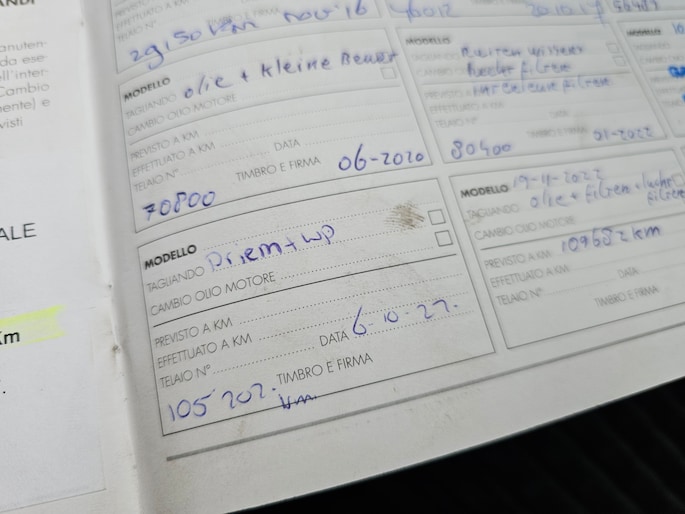 NDI
anuten-
da ese-
ell'inter-
Cambio
mente) e
visti
ALE
Km
TELAIO N°
29150 km nov '16
MODELLO
TAGLIANDO olie + kleine Beurt
CAMBIO OLIO MOTORE
PREVISTO A KM
EFFETTUATO A KM DATA
TELAIO N° TIMBRO E FIRMA 06-2020
70800
MODELLO
TAGLIANDO Priem + wp
CAMBIO OLIO MOTORE
PREVISTO A KM
EFFETTUATO A KM
TELAIO N° DATA 6-10-22.
105 202. TIMBRO E FIRMA
km.
MODELLO
TAGLIANDO
CAMBIO OLIO
PREVISTO
EFFETTUATO A KM
TELAIO N°
80400 01-2022
MODELLO 19-11-2022
TAGLIANDO olie + filter + lucht
filter
CAMBIO OLIO MOTORE
PREVISTO A KM 109682 km
EFFETTUATO A KM
TELAIO N° DATA
TIMBRO E FIRMA